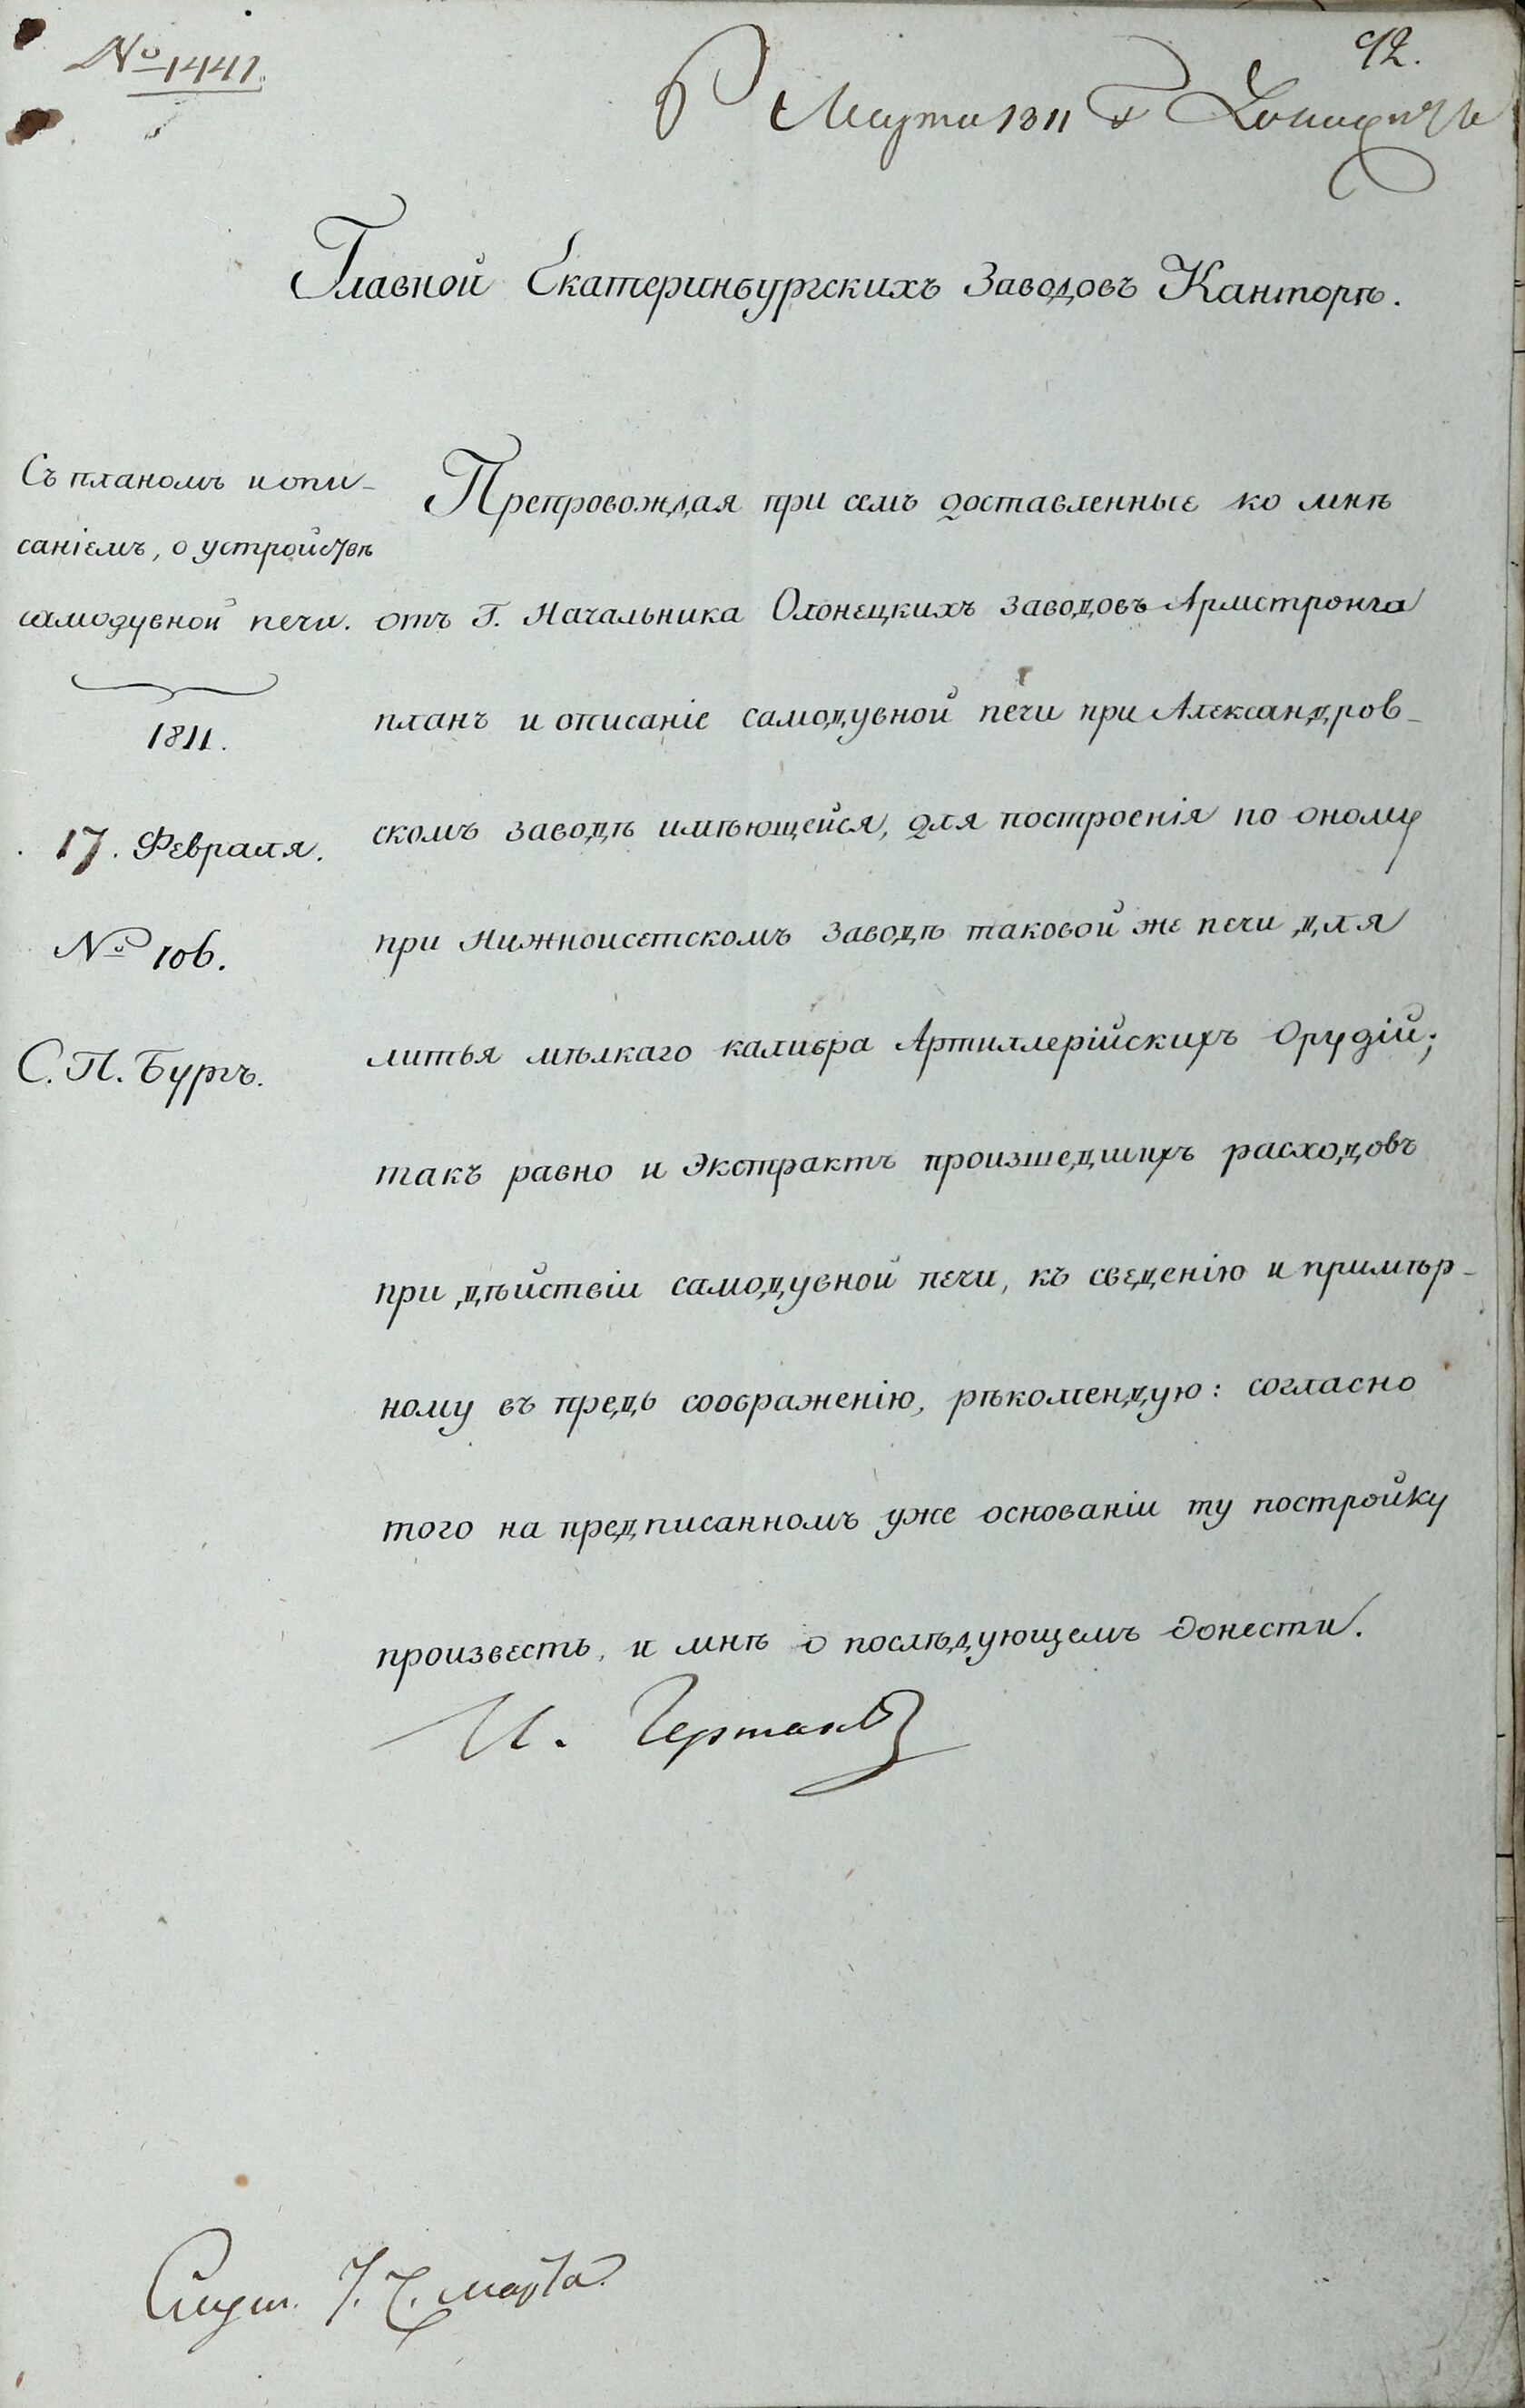 № 1441.
92.
Марта 1811
Главной Екатеринбургскихъ Заводовъ Канторѣ.
Съ планомъ и опи-
саніемъ, о устройствѣ
самодувной печи.
1811.
17. Февраля.
№ 106.
С. П. Бургъ.
Препровождая при семъ доставленные ко мнѣ
отъ Г. Начальника Олонецкихъ заводовъ Армстронга
планъ и описаніе самодувной печи при Александров-
скомъ заводѣ имѣющейся, для построенія по оному
при Нижноисетскомъ заводѣ таковой же печи для
литья мѣлкаго калибра Артиллерійскихъ Орудій;
такъ равно и Экстрактъ произшедшихъ расходовъ
при дѣйствіи самодувной печи, къ сведенію и примѣр-
ному въ предь соображенію, рѣкомендую: согласно
того на предписанномъ уже основаніи ту постройку
произвесть, и мнѣ о послѣдующемъ донести.
И. Германъ
Слуш. 7. марта.